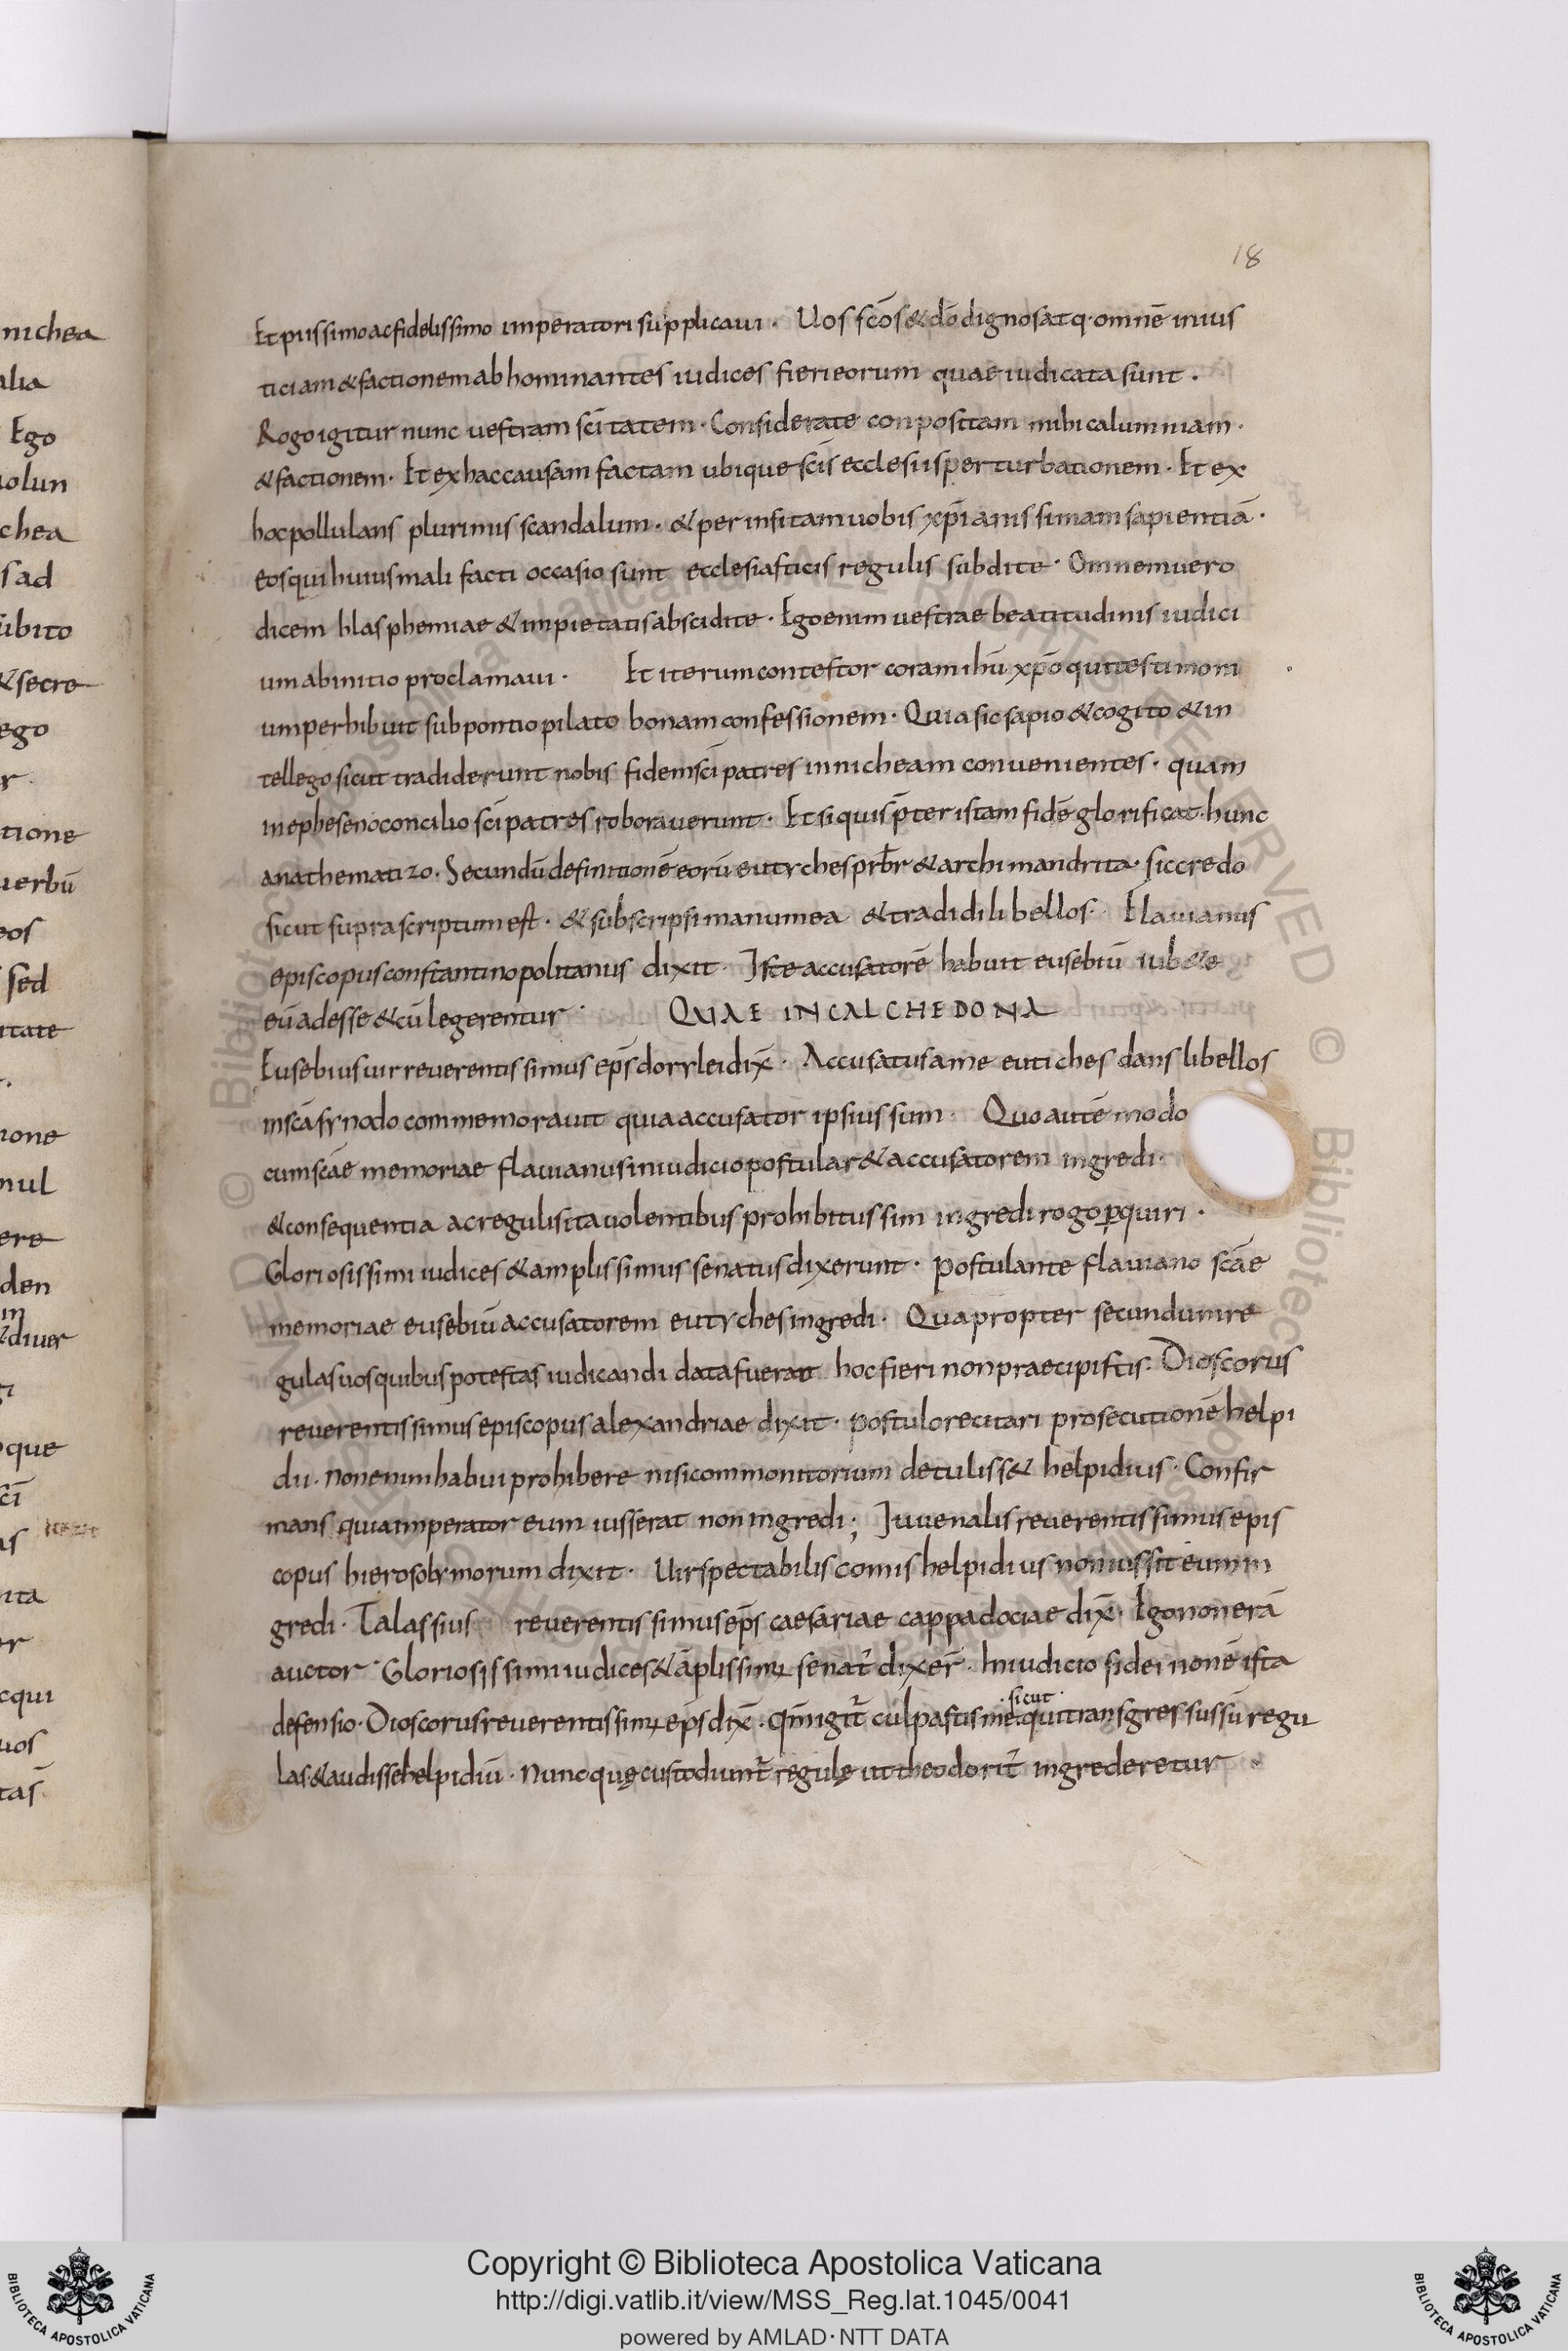 18
Et piissimo ac fidelissimo imperatori supplicaui · Uos sc̄os & dō dignos atq· omnē inius
ticiam & factionem abhominantes iudices fieri eorum quae iudicata sunt ·
Rogo igitur nunc uestram sc̄itatem · Considerate conpositam mihi calumniam ·
& factionem · Et ex hac causam factam ubique sc̄is ecclesiis perturbationem · Et ex
hoc pollulans plurimis scandalum · & per insitam uobis xp̄ianissimam sapientiā ·
eos qui huius mali facti occasio sunt ecclesiasticis regulis subdite · Omnem uero
dicem blasphemiae & impietatis abscidite · Ego enim uestrae beatitudinis iudici
um ab initio proclamaui · Et iterum contestor coram ihū xp̄o qui testimoni
um perhibuit sub pontio pilato bonam confessionem · Quia sic sapio & cogito & in
tellego sicut tradiderunt nobis fidem sc̄i patres in nicheam conuenientes · quam
in epheseno concilio sc̄i patres roborauerunt · Et si quis p̄ter istam fidē glorificat · hunc
anathematizo · Secundū definitionē eorū eutyches prb̄r & archimandrita · sic credo
sicut supra scriptum est · & subscripsi manu mea & tradidi libellos · Flauianus
episcopus constantinopolitanus dixit · Iste accusatorē habuit eusebiū iub&e
eū adesse & cū legerentur · QUAE IN CALCHEDONA
Eusebius uir reuerentissimus ep̄s dorylei dix̄ · Accusatus a me eutiches dans libellos
in sc̄a synodo commemorauit quia accusator ipsius sum · Quo autē modo
cum sc̄ae memoriae flauianus in iudicio postular& accusatorem ingredi ·
& consequentia ac regulis ita uolentibus prohibitus sim ingredi rogo ꝑquiri ·
Gloriosissimi iudices & amplissimus senatus dixerunt · postulante flauiano sc̄ae
memoriae eusebiū accusatorem eutyches ingredi · Quapropter secundum re
gulas uos quibus potestas iudicandi data fuerat hoc fieri non praecipistis · Dioscorus
reuerentissimus episcopus alexandriae dixit · postulo recitari prosecutionē helpi
dii · non enim habui prohibere nisi commonitorium detuliss& helpidius · Confir
mans quia imperator eum iusserat non ingredi ; Iuuenalis reuerentissimus epis
copus hierosolymorum dixit · Uir spectabilis comis helpidius non iussit eum in
gredi · Talassius reuerentissimus ep̄s caesariae cappadociae dix̄ · Ego non erā
auctor · Gloriosissimi iudices & āplissim; senat᷒ dixer̄ · In iudicio fidei non ē ista
defensio · Dioscorus reuerentissim; ep̄s dix̄ · qm̄ igit᷒ culpastis me · sicut · qui transgressus sū regu
las · & audisse helpidiū · Nunc quę custodiunt᷒ regulę ut theodorit᷒ ingrederetur
nichea
alia
Ego
uolun
chea
s ad
ubito
& secre
ego
r
tione
uerbū
eos
sed
itate
none
nul
ere
den
in
diuer
que
sc̄i
as
ita
or
cqui
uos
tas̄
© Biblioteca Apostolica Vaticana ALL RIGHTS RESERVED
Copyright © Biblioteca Apostolica Vaticana
http://digi.vatlib.it/view/MSS_Reg.lat.1045/0041
powered by AMLAD·NTT DATA
BIBLIOTECA APOSTOLICA VATICANA
BIBLIOTECA APOSTOLICA VATICANA